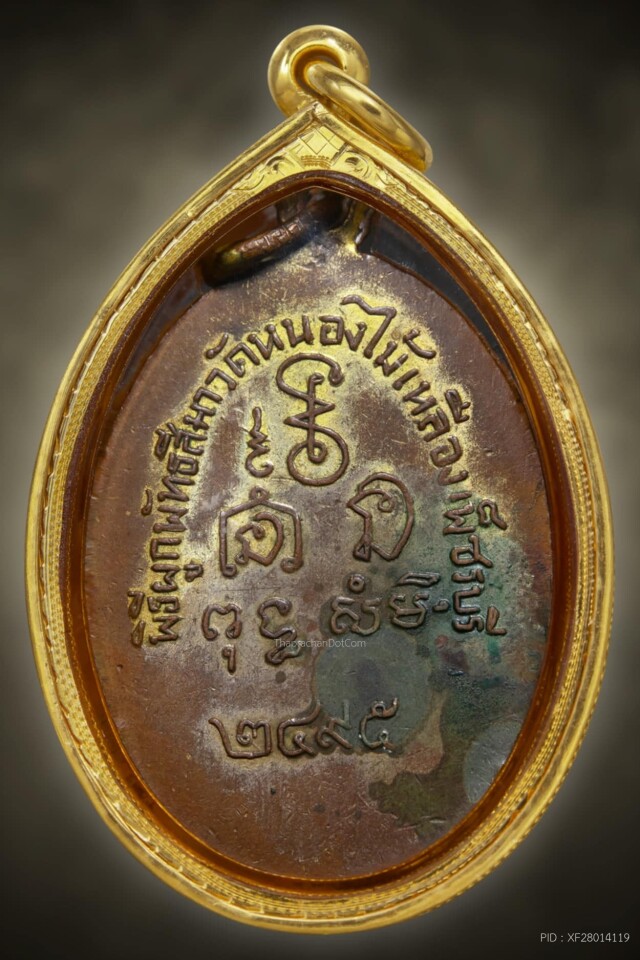 พิธีผูกพัทธสีมาวัดหนองไม้เหลือง เพ็ชรบุรี
๒๔๙๕
ThaprachanDotCom
PID : XF28014119